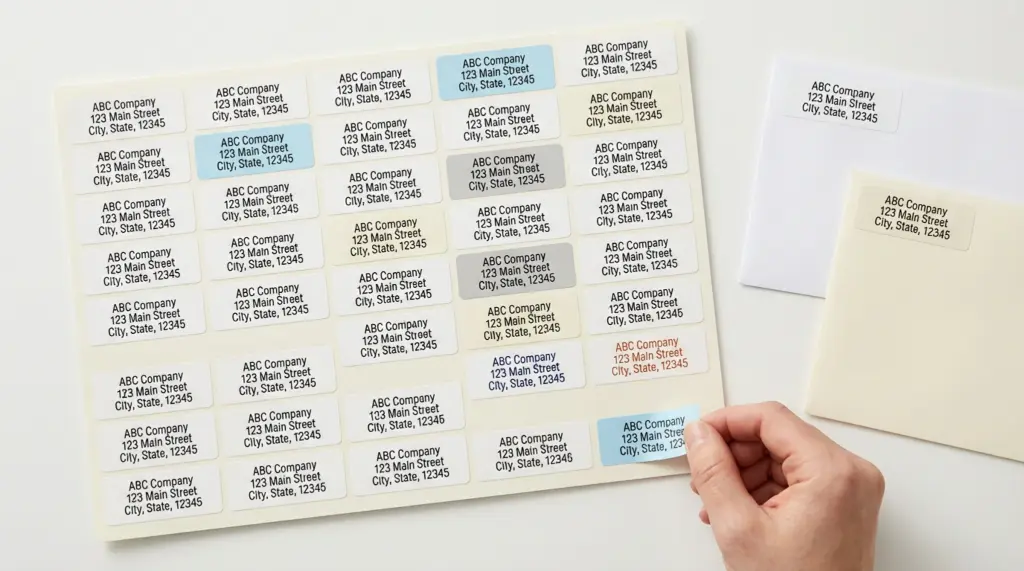 ABC Company
123 Main Street
City, State, 12345
ABC Company
123 Main Street
City, State, 12345
ABC Company
123 Main Street
City, State, 12345
ABC Company
123 Main Street
City, State, 12345
ABC Company
123 Main Street
City, State, 12345
ABC Company
123 Main Street
City, State, 12345
ABC Company
123 Main Street
City, State, 12345
ABC Company
123 Main Street
City, State, 12345
ABC Company
123 Main Street
City, State, 12345
ABC Company
123 Main Street
City, State, 12345
ABC Company
123 Main Street
City, State, 12345
ABC Company
123 Main Street
City, State, 12345
ABC Company
123 Main Street
City, State, 12345
ABC Company
123 Main Street
City, State, 12345
ABC Company
123 Main Street
City, State, 12345
ABC Company
123 Main Street
City, State, 12345
ABC Company
123 Main Street
City, State, 12345
ABC Company
123 Main Street
City, State, 12345
ABC Company
123 Main Street
City, State, 12345
ABC Company
123 Main Street
City, State, 12345
ABC Company
123 Main Street
City, State, 12345
ABC Company
123 Main Street
City, State, 12345
ABC Company
123 Main Street
City, State, 12345
ABC Company
123 Main Street
City, State, 12345
ABC Company
123 Main Street
City, State, 12345
ABC Company
123 Main Street
City, State, 12345
ABC Company
123 Main Street
City, State, 12345
ABC Company
123 Main Street
City, State, 12345
ABC Company
123 Main Street
City, State, 12345
ABC Company
123 Main Street
City, State, 12345
ABC Company
123 Main Street
City, State, 12345
ABC Company
123 Main Street
City, State, 12345
ABC Company
123 Main Street
City, State, 12345
ABC Company
123 Main Street
City, State, 12345
ABC Company
123 Main Street
City, State, 12345
ABC Company
123 Main Street
City, State, 12345
ABC Company
123 Main Street
City, State, 12345
ABC Company
123 Main Street
City, State, 12345
ABC Company
123 Main Street
City, State, 12345
ABC Company
123 Main
City, State,
ABC Company
123 Main Street
City, State, 12345
ABC Company
123 Main Street
City, State, 12345